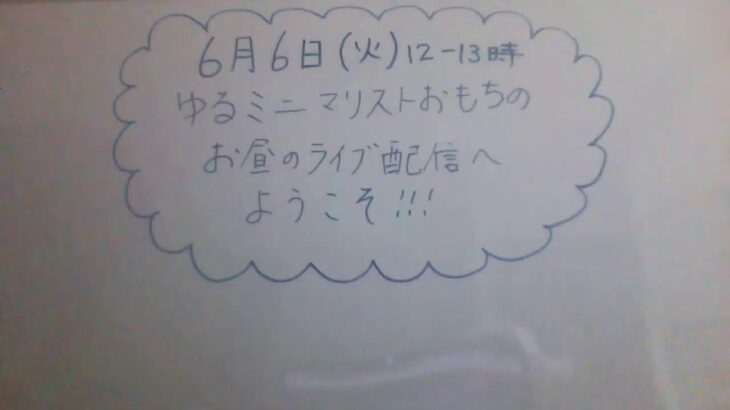 6月6日(火)12-13時
ゆるミニマリストおもちの
お昼のライブ配信へ
ようこそ!!!